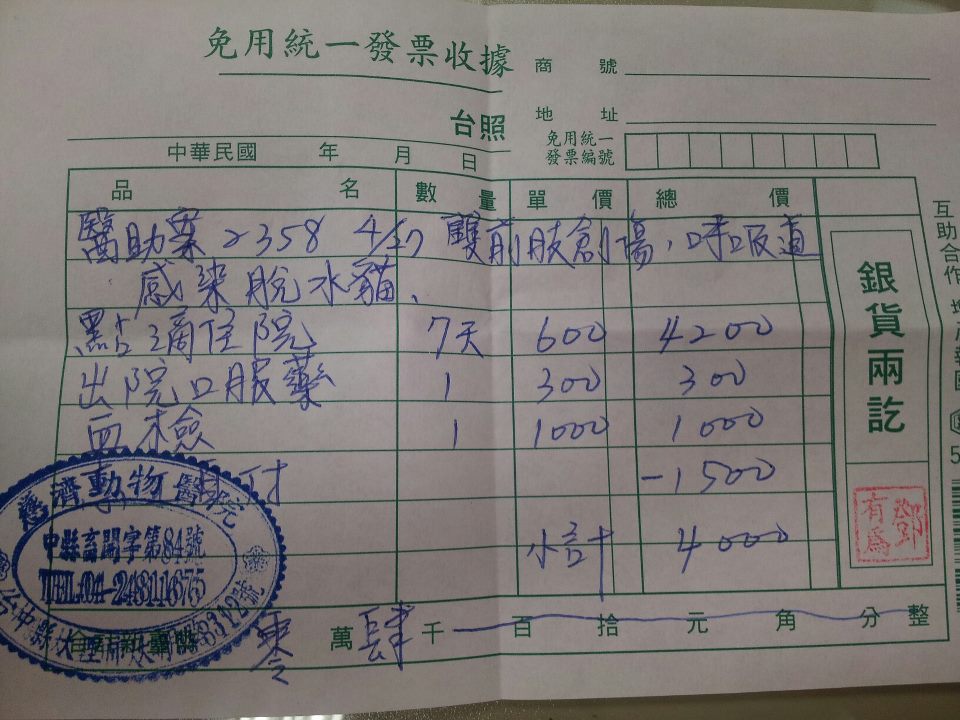 免用統一發票收據
商號
台照
地址
免用統一
發票編號
中華民國 年 月 日
品名 數量 單價 總價
醫助案2358 4/27 雙前肢創傷、呼吸道
感染脫水貓、
點滴住院 7天 600 4200
出院口服藥 1 300 300
血檢 1 1000 1000
付 -1500
小計 4000
零萬肆千 百 拾 元 角 分 整
銀貨兩訖
鄧有為
互助合作
慈濟動物醫院
中縣畜開字第84號
TEL:04-24811675